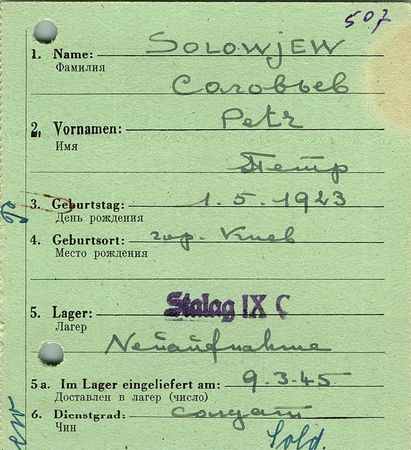 507
1. Name: SOLOWjEW
Фамилия
Соловьев
2. Vornamen: Petr
Имя
Петр
3. Geburtstag: 1.5.1923
День рождения
4. Geburtsort: гор. Киев
Место рождения
5. Lager: Stalag IX C
Лагерь
Neuaufnahme
5a. Im Lager eingeliefert am: 9.3.45
Доставлен в лагерь (число)
6. Dienstgrad: солдат
Чин
Sold.